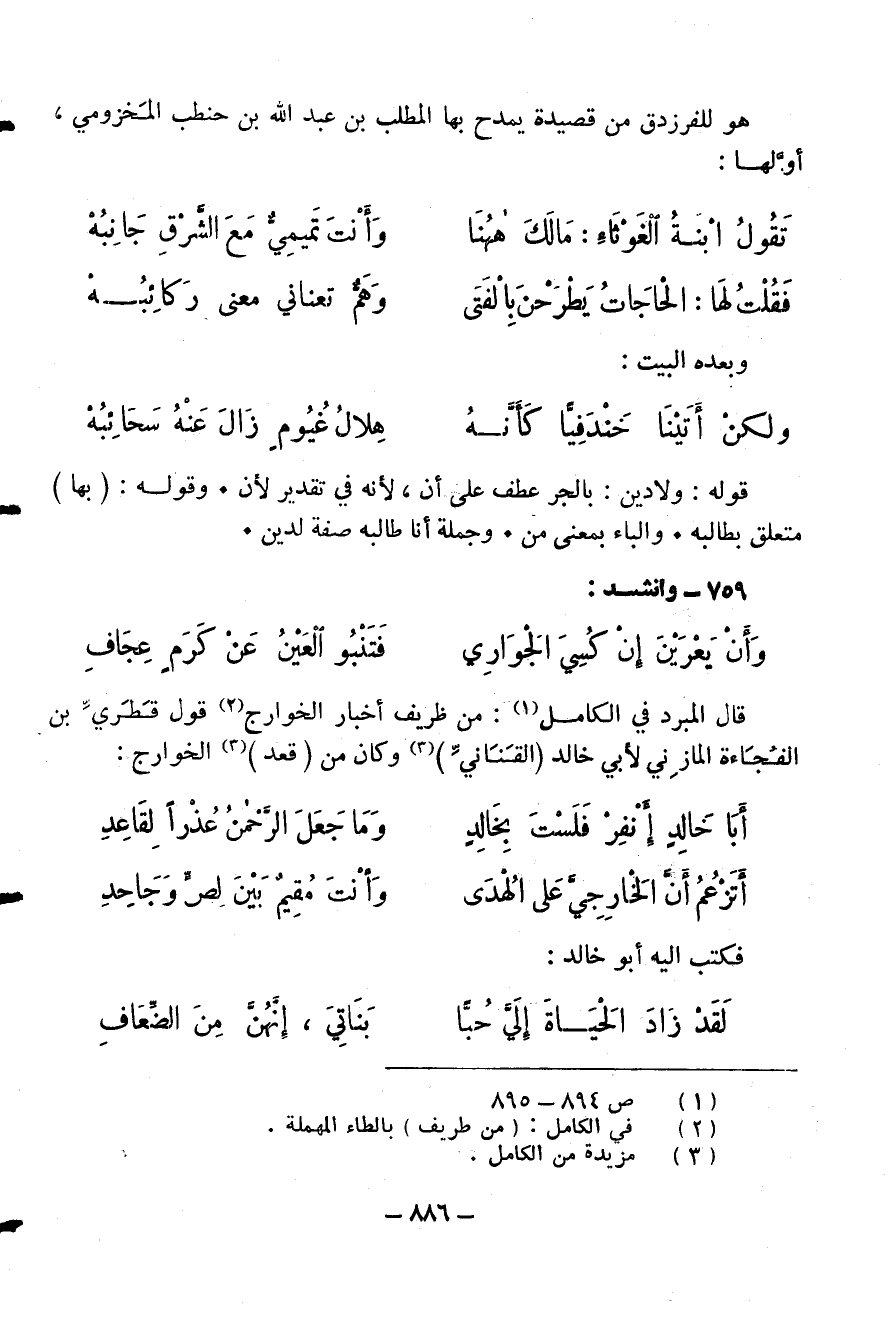 هو للفرزدق من قصيدة يمدح بها المطلب بن عبد الله بن حنطب المَخزومي ،
أوَّلهــا :
تَقُولُ ابْنَــةُ الْغَوْثَاءِ : مَالَكَ هٰهُنَا وَأَنْتَ تَمِيمِيٌّ مَعَ الشَّرْقِ جَانِبُهْ
فَقُلْتُ لَهَا : الْحَاجَاتُ يَطْرَحْنَ بِالْفَتَى وَهَمٌّ تعناني معنى رَكائِبُــهْ
وبعده البيت :
ولكنْ أَتَيْنَا خَنْدَفِيًّا كَأَنَّــهُ هِلالُ غُيُومٍ زَالَ عَنْهُ سَحَائِبُهْ
قوله : ولادين : بالجر عطف على أن ، لأنه في تقدير لأن ٠ وقولــه : ( بها )
متعلق بطالبه ٠ والباء بمعنى من ٠ وجملة أنا طالبه صفة لدين ٠
٧٥٩ – وانشــد :
وَأَنْ يَعْرَيْنَ إِنْ كُسِيَ الْجَوَارِي فَتَنْبُو الْعَيْنُ عَنْ كَرَمٍ عِجَافِ
قال المبرد في الكامــل(١) : من ظريف أخبار الخوارج(٢) قول قَطَريّ بن
الفُجَاءة المازِني لأبي خالد (القَنَانيّ)(٣) وكان من ( قعد )(٣) الخوارج :
أَبَا خَالِدٍ إِنْفِرْ فَلَسْتَ بِخَالِدٍ وَمَا جَعَلَ الرَّحْمٰنُ عُذْراً لِقَاعِدِ
أَتَزْعُمُ أَنَّ الْخَارِجِيَّ عَلى الْهُدَى وَأَنْتَ مُقِيمٌ بَيْنَ لِصٍّ وَجَاحِدِ
فكتب اليه أبو خالد :
لَقَدْ زَادَ الْحَيَــاةَ إِلَيَّ حُبًّا بَنَاتِيَ ، إِنَّهُنَّ مِنَ الضِّعَافِ
(١) ص ٨٩٤ – ٨٩٥
(٢) في الكامل : ( من طريف ) بالطاء المهملة .
(٣) مزيدة من الكامل .
– ٨٨٦ –